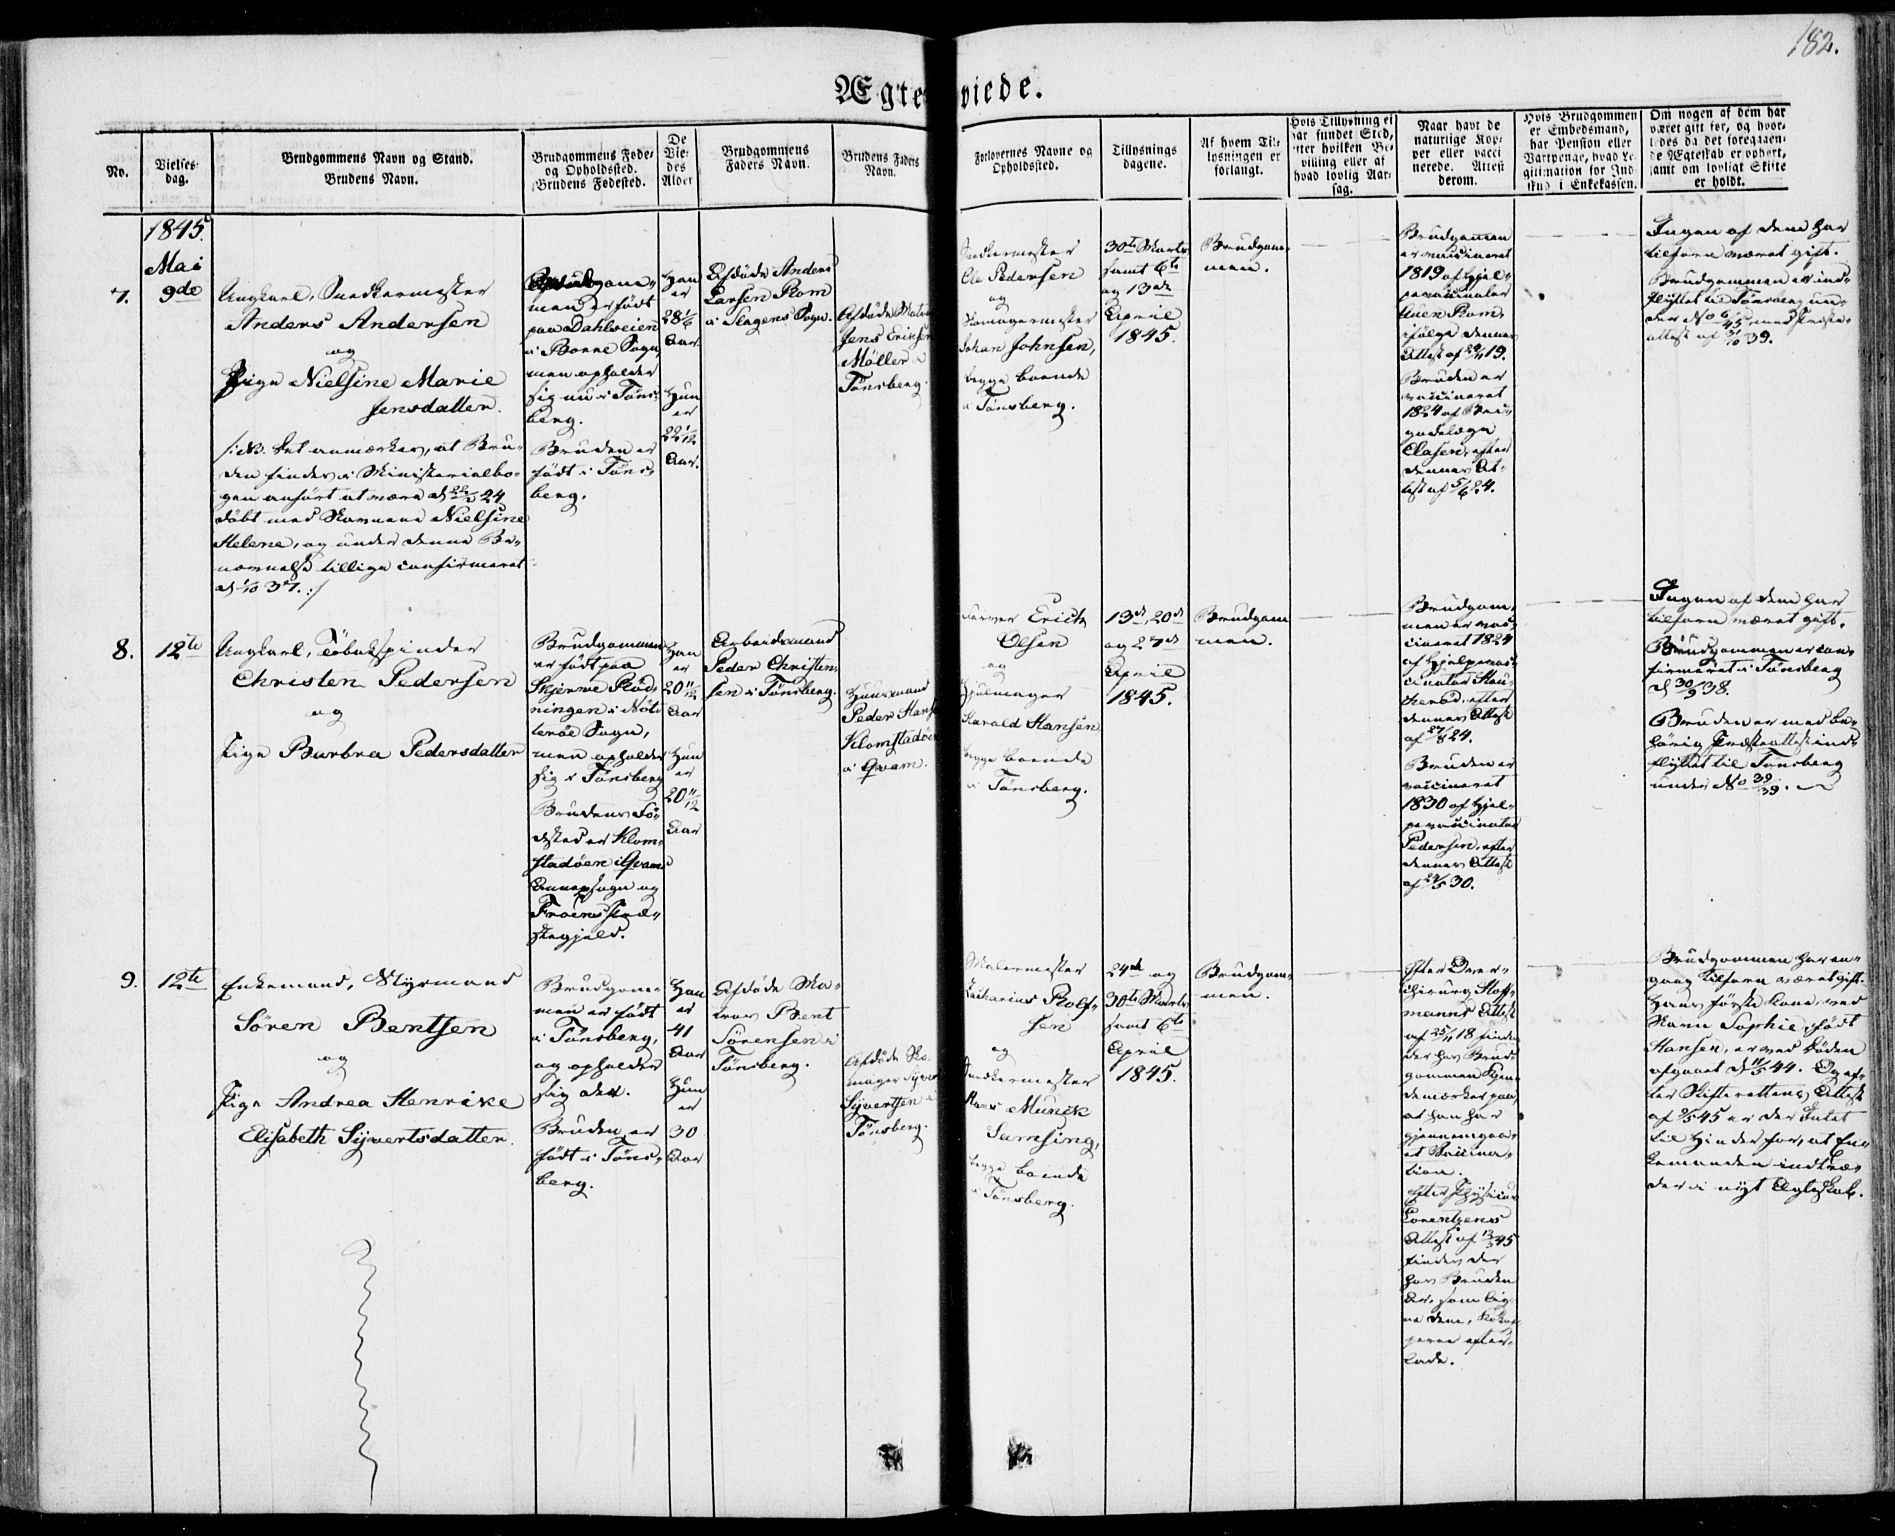 182.
Ægteviede.
No.
Vielses-
dag.
Brudgommens Navn og Stand.
Brudens Navn.
Brudgommens Føde-
og Opholdssted.
Brudens Fødested.
De
Vie-
des
Alder
Brudgommens
Faders Navn.
Brudens Faders
Navn.
Forlovernes Navne og
Opholdssted.
Tillysnings
dagene.
Af hvem Til-
lysningen er
forlangt.
Hvis Tillysning ei
har fundet Sted,
efter hvilken Be-
villing eller af
hvad lovlig Aar-
sag.
Naar havt de
naturlige Kop-
per eller vacci
nerede. Attest
derom.
Hvis Brudgommen
er Embedsmand,
har Pension eller
Vartpenge, hvad Le-
gitimation for Ind
skud i Enkekassen.
Om nogen af dem har
været gift før, og hvor-
ledes da det foregaaen-
de Ægteskab er ophørt,
samt om lovligt Skifte
er holdt.
1845.
Mai
7.
9de
Ungkarl, Snedkermester
Anders Andersen
og
Pige Nielsine Marie
Jensdatter.
/: NB. Det anmærkes, at Bru-
den findes i Ministerialbo-
gen anført at være d 22/2 24
døbt med Navnene Nielsine
Helene, og under denne Be-
nævnelse tillige confirmeret
d 1/10 37. :/
Brudgom-
men er født
paa Dahlveien
i Borre Sogn,
men opholder
sig nu i Tøns-
berg.
Bruden er
født i Tøns-
berg.
Han
er
28 1/6
Aar.
Hun
er
22 1/12
Aar.
Afdøde Anders
Larsen Rom
i Slagens Sogn.
Afdøde Matros
Jens Eriksen
Møller i
Tønsberg.
Snedkermester
Ole Pedersen
og
Skomagermester
Johan Johnsen,
begge boende
i Tønsberg.
30te Marts
samt 6te
og 13de
April
1845.
Brudgom-
men.
Brudgommen
er vaccineret
1819 af Hjel-
pevaccinateur
Iuen Rom,
ifølge dennes
Attest af 29/11 19.
Bruden er
vaccineret
1824 af Bri-
gadelæge
Clasen, efter
dennes At-
test af 5/6 24.
Ingen af dem har
tilforn været gift.
Brudgommen er ind-
flyttet til Tønsberg un-
der No 6/45 med Præste-
attest af 31/10 39.
8.
12te
Ungkarl, Tobakspinder
Christen Pedersen
og
Pige Barbra Pedersdatter
Brudgommen
er født paa
Skjerve Rød-
ningen i Nøt-
terøe Sogn,
men opholder
sig i Tønsberg
Brudens Fø-
dested er Klom-
stadøen i Qvams
Annexsogn og
Froens Præ-
stegjeld.
Han
er
20 11/12
Aar
Hun
er
20 11/12
Aar
Arbeidsmand
Peder Christen-
sen i Tønsberg.
Huusmand
Peder Hansen
Klomstadøen
i Qvam.
Farver Erich
Olsen
og
Hjulmager
Harald Hansen
begge boende
i Tønsberg.
13de, 20de
og 27de
April
1845.
Brudgom
men.
Brudgom-
men er vac-
cineret 1824
af Hjelpevac-
cinateur Hau-
kerød, efter
dennes Attest
af 27/8 24.
Bruden er
vaccineret
1830 af Hjel-
pevaccinateur
Pedersen, efter
dennes Attest
af 29/5 30.
Ingen af dem har
tilforn været gift.
Brudgommen er con-
firmeret i Tønsberg
d 30/9 38.
Bruden er med be-
hørig Præsteattest ind-
flyttet til Tønsberg
under No 39/39.
9.
12te
Enkemand, Styrmand
Søren Bentsen
og
Pige Andrea Henrike
Elisabeth Syvertsdatter.
Brudgom-
men er født
i Tønsberg,
og opholder
sig der.
Bruden er
født i Tøns-
berg.
Han
er
41
Aar
Hun
er
30
Aar
Afdøde Ma-
tros Bent
Sørensen i
Tønsberg.
Afdøde Sko-
mager Syvert
Syvertsen i
Tønsberg.
Malermester
Zacharias Rolf-
sen
og
Snedkermester
Hans Munik
Samsing,
begge boende
i Tønsberg.
24de og
30te Marts
samt 6te
April
1845.
Brudgom-
men.
Efter Over-
chirurg Hoff-
manns Attest
af 25/11 18 findes
der hos Brud-
gommen Kjen-
demærker paa,
at han har
gjennemgaa-
et Vaccina-
tion.
efter Physicus
Lorentzens
Attest af 12/3 45
findes der
hos Bruden
Ar, som lig-
ne dem, Kokop-
perne efter-
lade.
Brudgommen har en-
gang tilforn været gift.
Hans første Kone, ved
Navn Sophie, født
Hansen, er ved Døden
afgaaet d 11/5 44. Og ef-
ter Skifterettens Attest
af 2/5 45 er der Intet
til Hinder for, at En-
kemanden indtræ-
der i nyt Ægteskab.